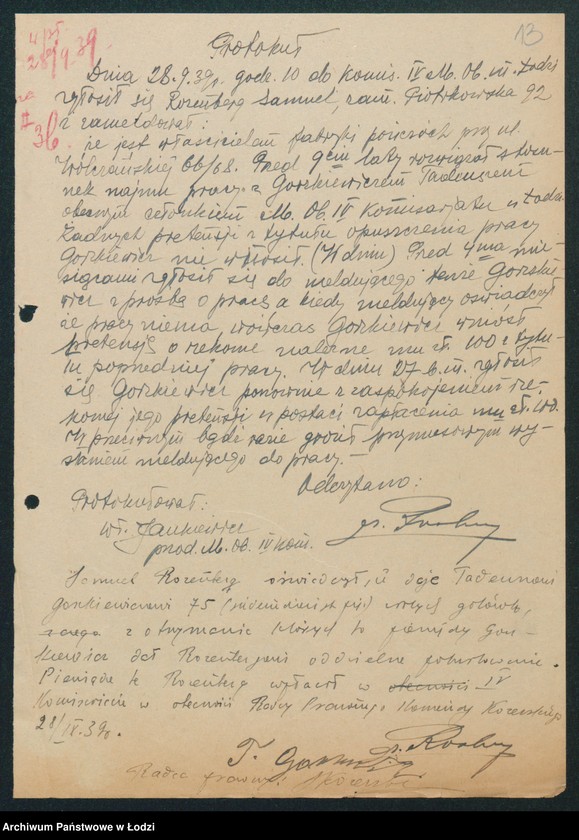 4/IX
28/9.39.
13
Protokuł
Dnia 28.9.39r. godz. 10 do Komis. IV M. Ob. m. Łodzi
zgłosił się Rozenberg Samuel, zam. Piotrkowska 92
i zameldował:
że jest właścicielem fabryki pończoch przy ul.
36.
Wólczańskiej 66/68. Przed 9cim laty rozwiązał stosu-
nek najmu pracy z Gorzkiewiczem Tadeuszem
obecnym członkiem M. Ob. IV Komisarjatu w Łodzi
Żadnych pretensji z tytułu opuszczenia pracy
Gorzkiewicz nie wnosił. (W dniu) Przed 4ma mie-
siącami zgłosił się do meldującego tenże Gorzkie-
wicz z prośbą o pracę a kiedy meldujący oświadczył
że pracy niema, wówczas Gorzkiewicz wniósł
pretensję o rzekome należne mu zł. 100 z tytu-
łu poprzedniej pracy. W dniu 27 b.m. zgłosił
się Gorzkiewicz ponownie z zaspokojeniem rze-
komej jego pretensji w postaci zapłacenia mu zł. 100.
W przeciwnym bądź razie groził przymusowym wy-
słaniem meldującego do pracy.-
Odczytano:
Protokułował:
Wł. Jankiewicz
przod. M. Ob. IV Kom.
Samuel Rozenberg oświadczył, iż daje Tadeuszowi
Gorzkiewiczowi 75 (siedemdziesiąt pięć) złotych gotówką,
z otrzymania których to pieniędzy Gorz-
kiewicz dał Rozenbergowi oddzielne pokwitowanie.
Pieniądze te Rozenberg wpłacił w obecności IV
Komisariacie w obecności Radcy Prawnego Komendy
28/IX.39r.
T. Gorzkiewicz
Radca prawny
Archiwum Państwowe w Łodzi